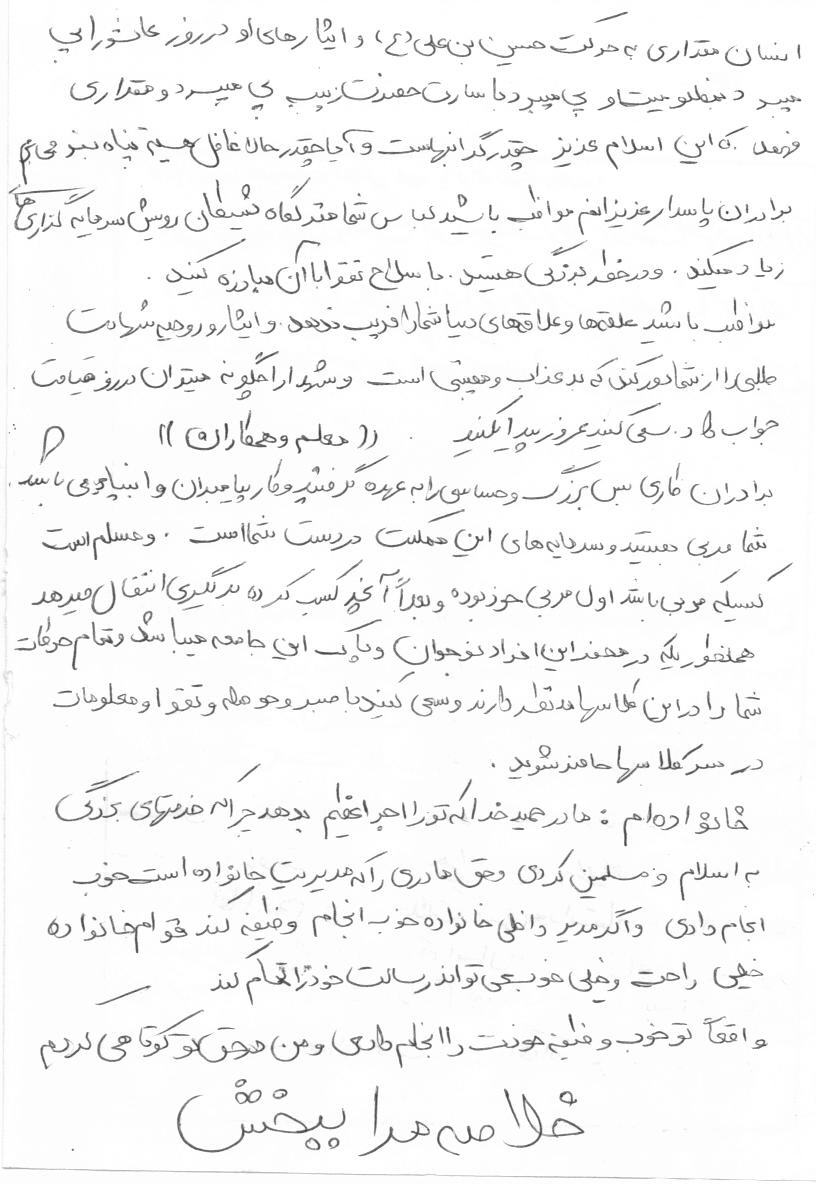 انسان مقداری به حرکت حسین بن علی (ع) و ایثارهای او در روز عاشورا پی
میبرد و مظلومیت او پی میبرد با اسارت حضرت زینب پی میبرد و مقداری
که این اسلام عزیز چقدر گرانبهاست و آیا چقدر حالا غافل هستیم پناه بخدا می‌بریم
برادران پاسدار عزیزانم مواظب باشید لباس شما متد گاه شیطان رویش سرمایه گذاری‌ها
زیاد میکند . و در خطر بزرگی هستید . با سلاح تقوا با آن مبارزه کنید .
مواظب باشید علقه‌ها و علاقه‌های دنیا شما را فریب ندهد . و ایثار و روحیه شهادت
طلبی را از شما دور کند که بد عذاب و معیشتی است و شهدا را چگونه میتوان در روز قیامت
جواب داد . سعی کنید عروز پیدا نکنید . (( معلم و همکاران ))
برادران کاری بس بزرگ و حساسی را به عهده گرفتید و کار پیامبران و انبیاء می باشد .
شما مربی هستید و سرمایه‌های این مملکت در دست شما است . و مسلم است
کسیکه مربی باشد اول مربی خود بوده و بعداً آنچه کسب کرده به دیگری انتقال میدهد
همانطوریکه در محضر این افراد نوجوان و پاک این جامعه میباشد و تمام حرکات
شما را در این کلاسها مد نظر دارند و سعی کنید با صبر و حوصله و تقوا و معلومات
در سر کلاسها حاضر شوید .
خانواده‌ام : مادر حمید خدا که تو را اجر عظیم بدهد چرا که خدمتهای بزرگی
به اسلام و مسلمین کردی و حق مادری را که مدیریت خانواده است خوب
انجام دادی و اگر مدیر داخلی خانواده خوب انجام وظیفه کند قوام خانواده
خیلی راحت و خیلی خوب می تواند رسالت خود را تمام کند
واقعاً تو خوب وظیفه خودت را انجام دادی و من در حق تو کوتاهی کردم
خلاصه مرا ببخش